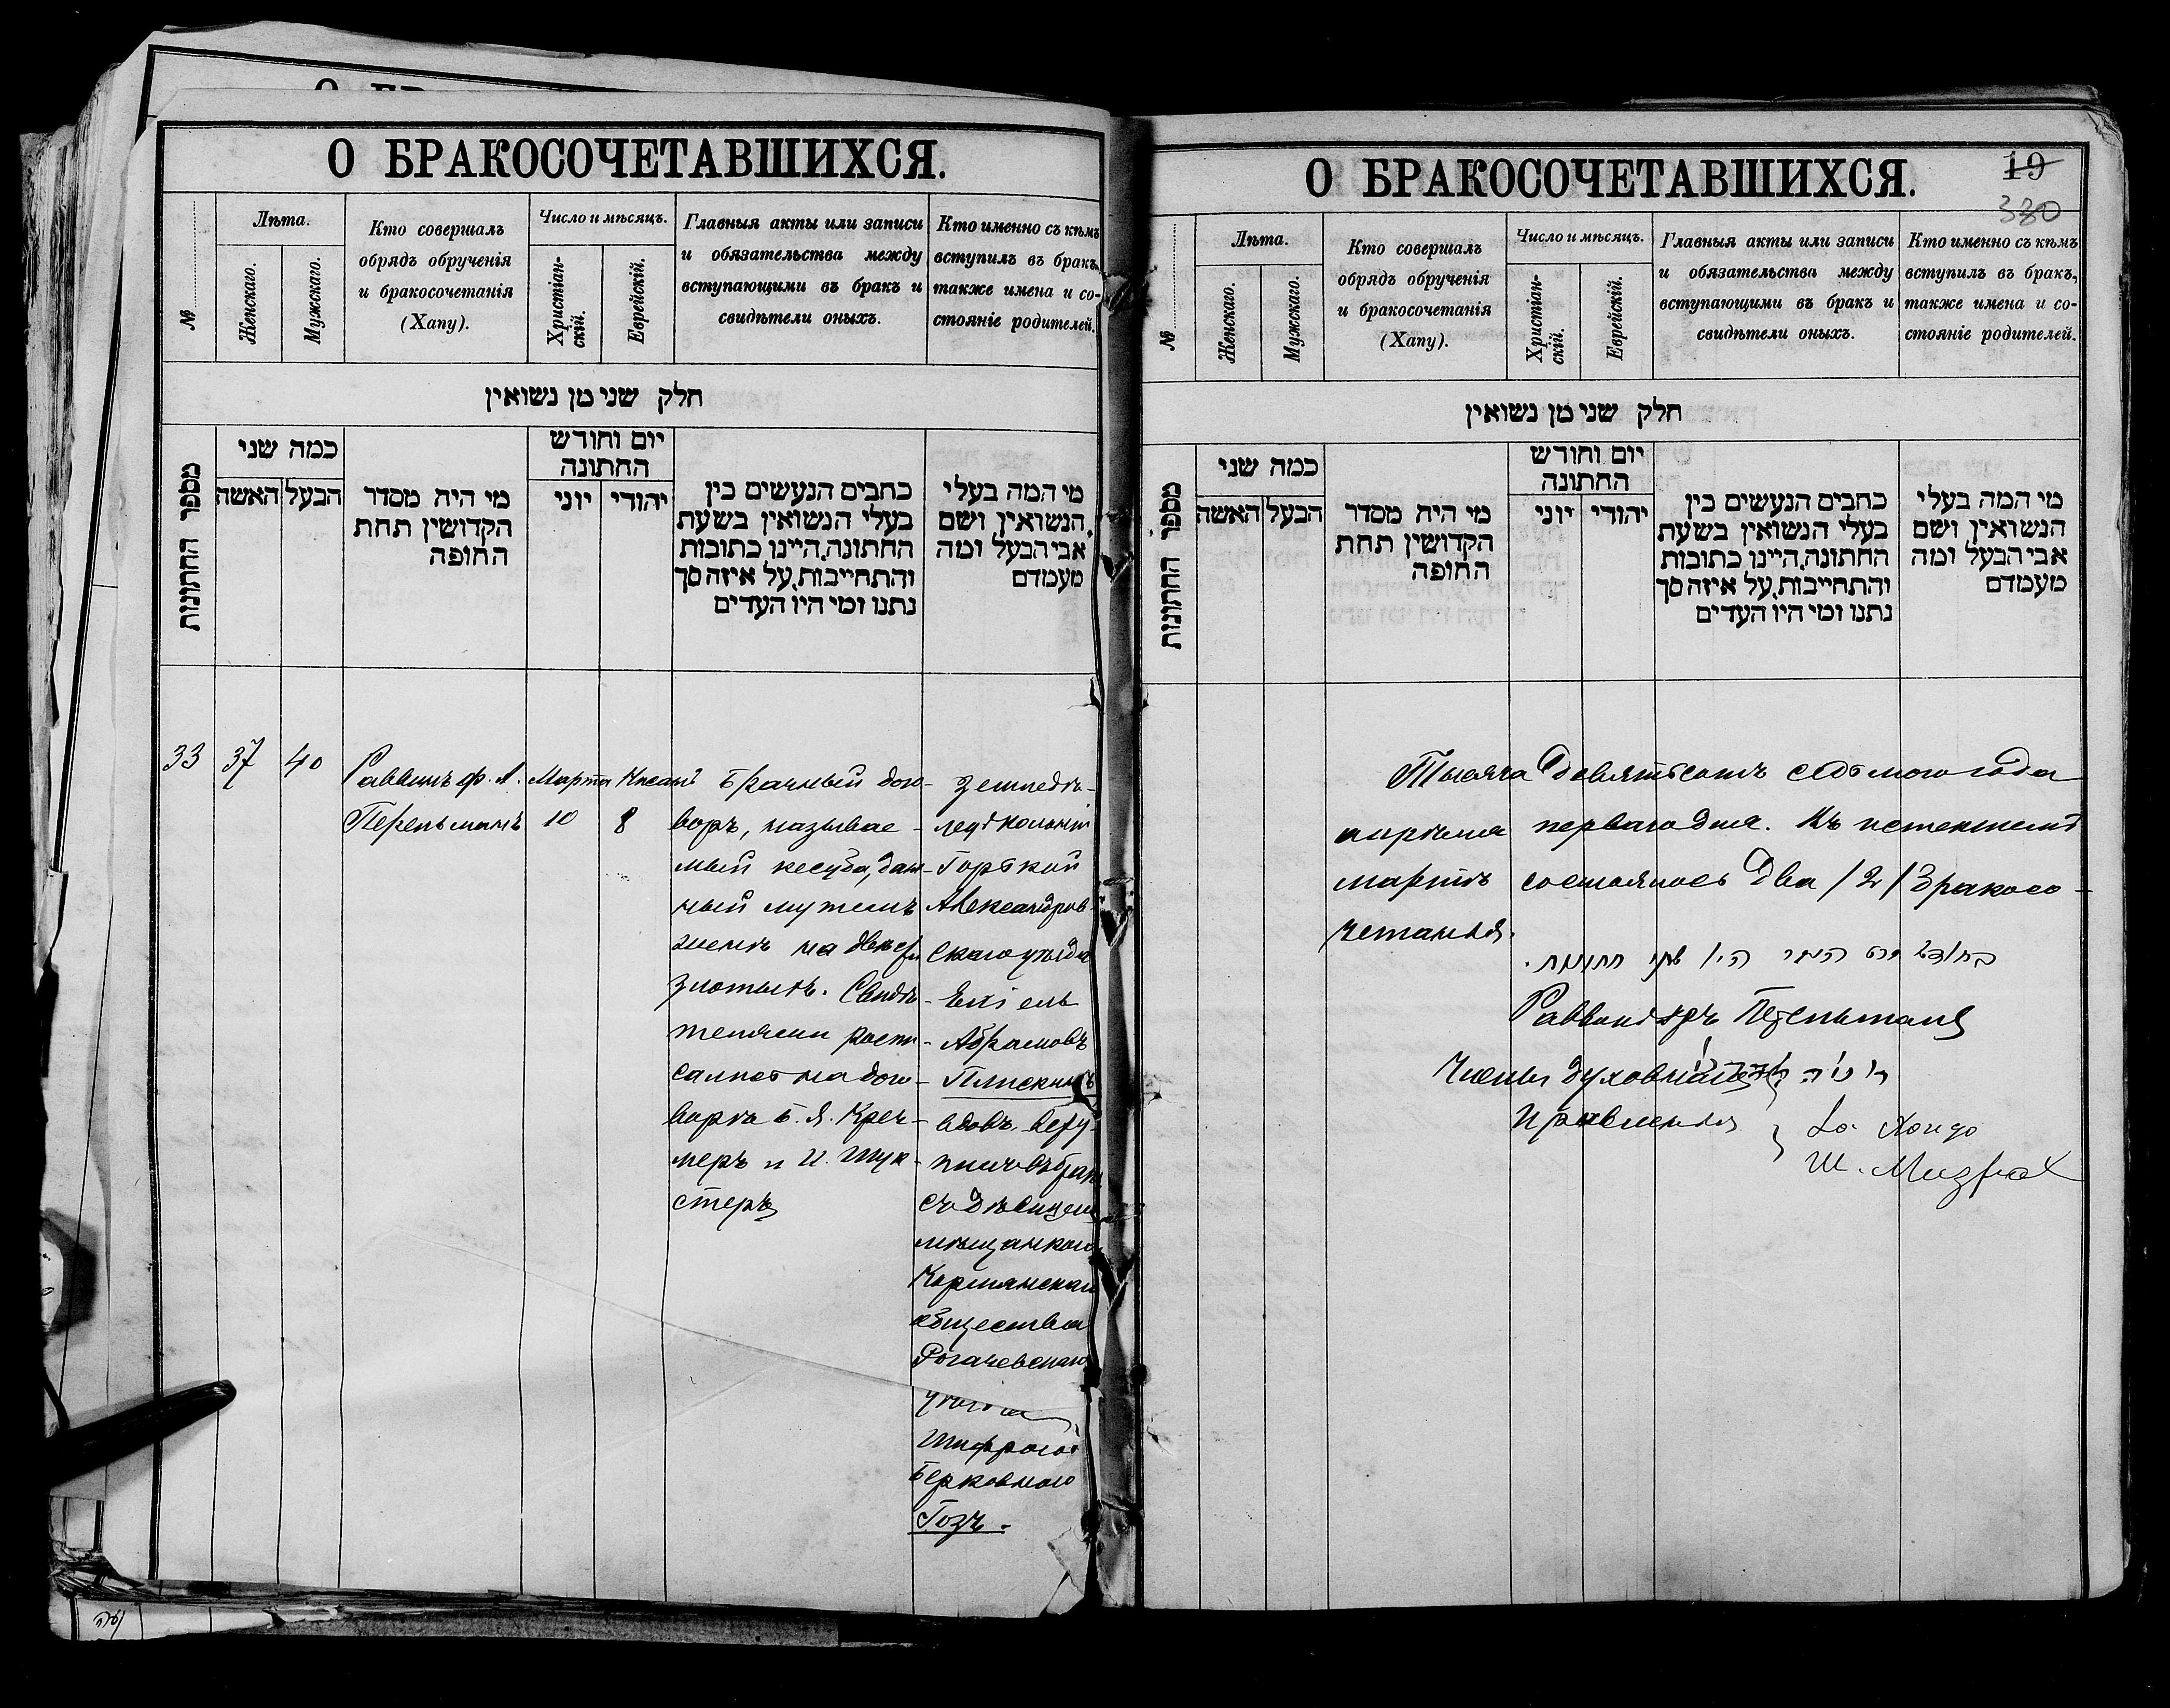 О БРАКОСОЧЕТАВШИХСЯ.
№
Лѣта.
Женскаго.
Мужскаго.
Кто совершалъ
обрядъ обрученія
и бракосочетанія
(Хапу).
Число и мѣсяцъ.
Христіан-
скій.
Еврейскій.
Главныя акты или записи
и обязательства между
вступающими въ бракъ и
свидѣтели оныхъ.
Кто именно съ кѣмъ
вступилъ въ бракъ,
также имена и со-
стояніе родителей.
חלק שני מן נשואין
מספר החתונות
כמה שני
האשה
הבעל
מי היה מסדר
הקדושין תחת
החופה
יום וחודש
החתונה
יוני
יהודי
כתבים הנעשים בין
בעלי הנשואין בשעת
החתונה, היינו כתובות
והתחייבות, על איזה סך
נתנו ומי היו העדים
מי המה בעלי
הנשואין ושם
אבי הבעל ומה
מעמדם
33
37
40
Раввинъ Ф. Л.
Перельманъ
Марта
10
8
Брачный дого-
воръ, называе-
мый кесуба, дан-
ный мужемъ
женѣ на двѣсти
злотыхъ. Свидѣ-
телями роспи-
сались на дого-
ворѣ Б. Я. Креч-
меръ и И. Шук-
стеръ
Земледѣ-
лецъ колоніи
Горькой
Александров-
скаго уѣзда
Ехіель
Абрамовъ
Плискинъ
вдов. всту-
пилъ въ бракъ
съ дѣвицею
мѣщанкою
Кормянскаго
общества
Рогачевскаго
уѣзда
Шифрою
Берковною
Гозъ.
О БРАКОСОЧЕТАВШИХСЯ.
19
380
№
Лѣта.
Женскаго.
Мужскаго.
Кто совершалъ
обрядъ обрученія
и бракосочетанія
(Хапу).
Число и мѣсяцъ.
Христіан-
скій.
Еврейскій.
Главныя акты или записи
и обязательства между
вступающими въ бракъ и
свидѣтели оныхъ.
Кто именно съ кѣмъ
вступилъ въ бракъ,
также имена и со-
стояніе родителей.
חלק שני מן נשואין
מספר החתונות
כמה שני
האשה
הבעל
מי היה מסדר
הקדושין תחת
החופה
יום וחודש
החתונה
יוני
יהודי
כתבים הנעשים בין
בעלי הנשואין בשעת
החתונה, היינו כתובות
והתחייבות, על איזה סך
נתנו ומי היו העדים
מי המה בעלי
הנשואין ושם
אבי הבעל ומה
מעמדם
Тысяча девятьсотъ седьмого года
апрѣля перваго дня. Въ истекшемъ
мартѣ состоялось два /2/ бракосо-
четанія.
בחודש מרט היו שתי חתונות.
Раввинъ Перельманъ
Члены духовнаго
правленія